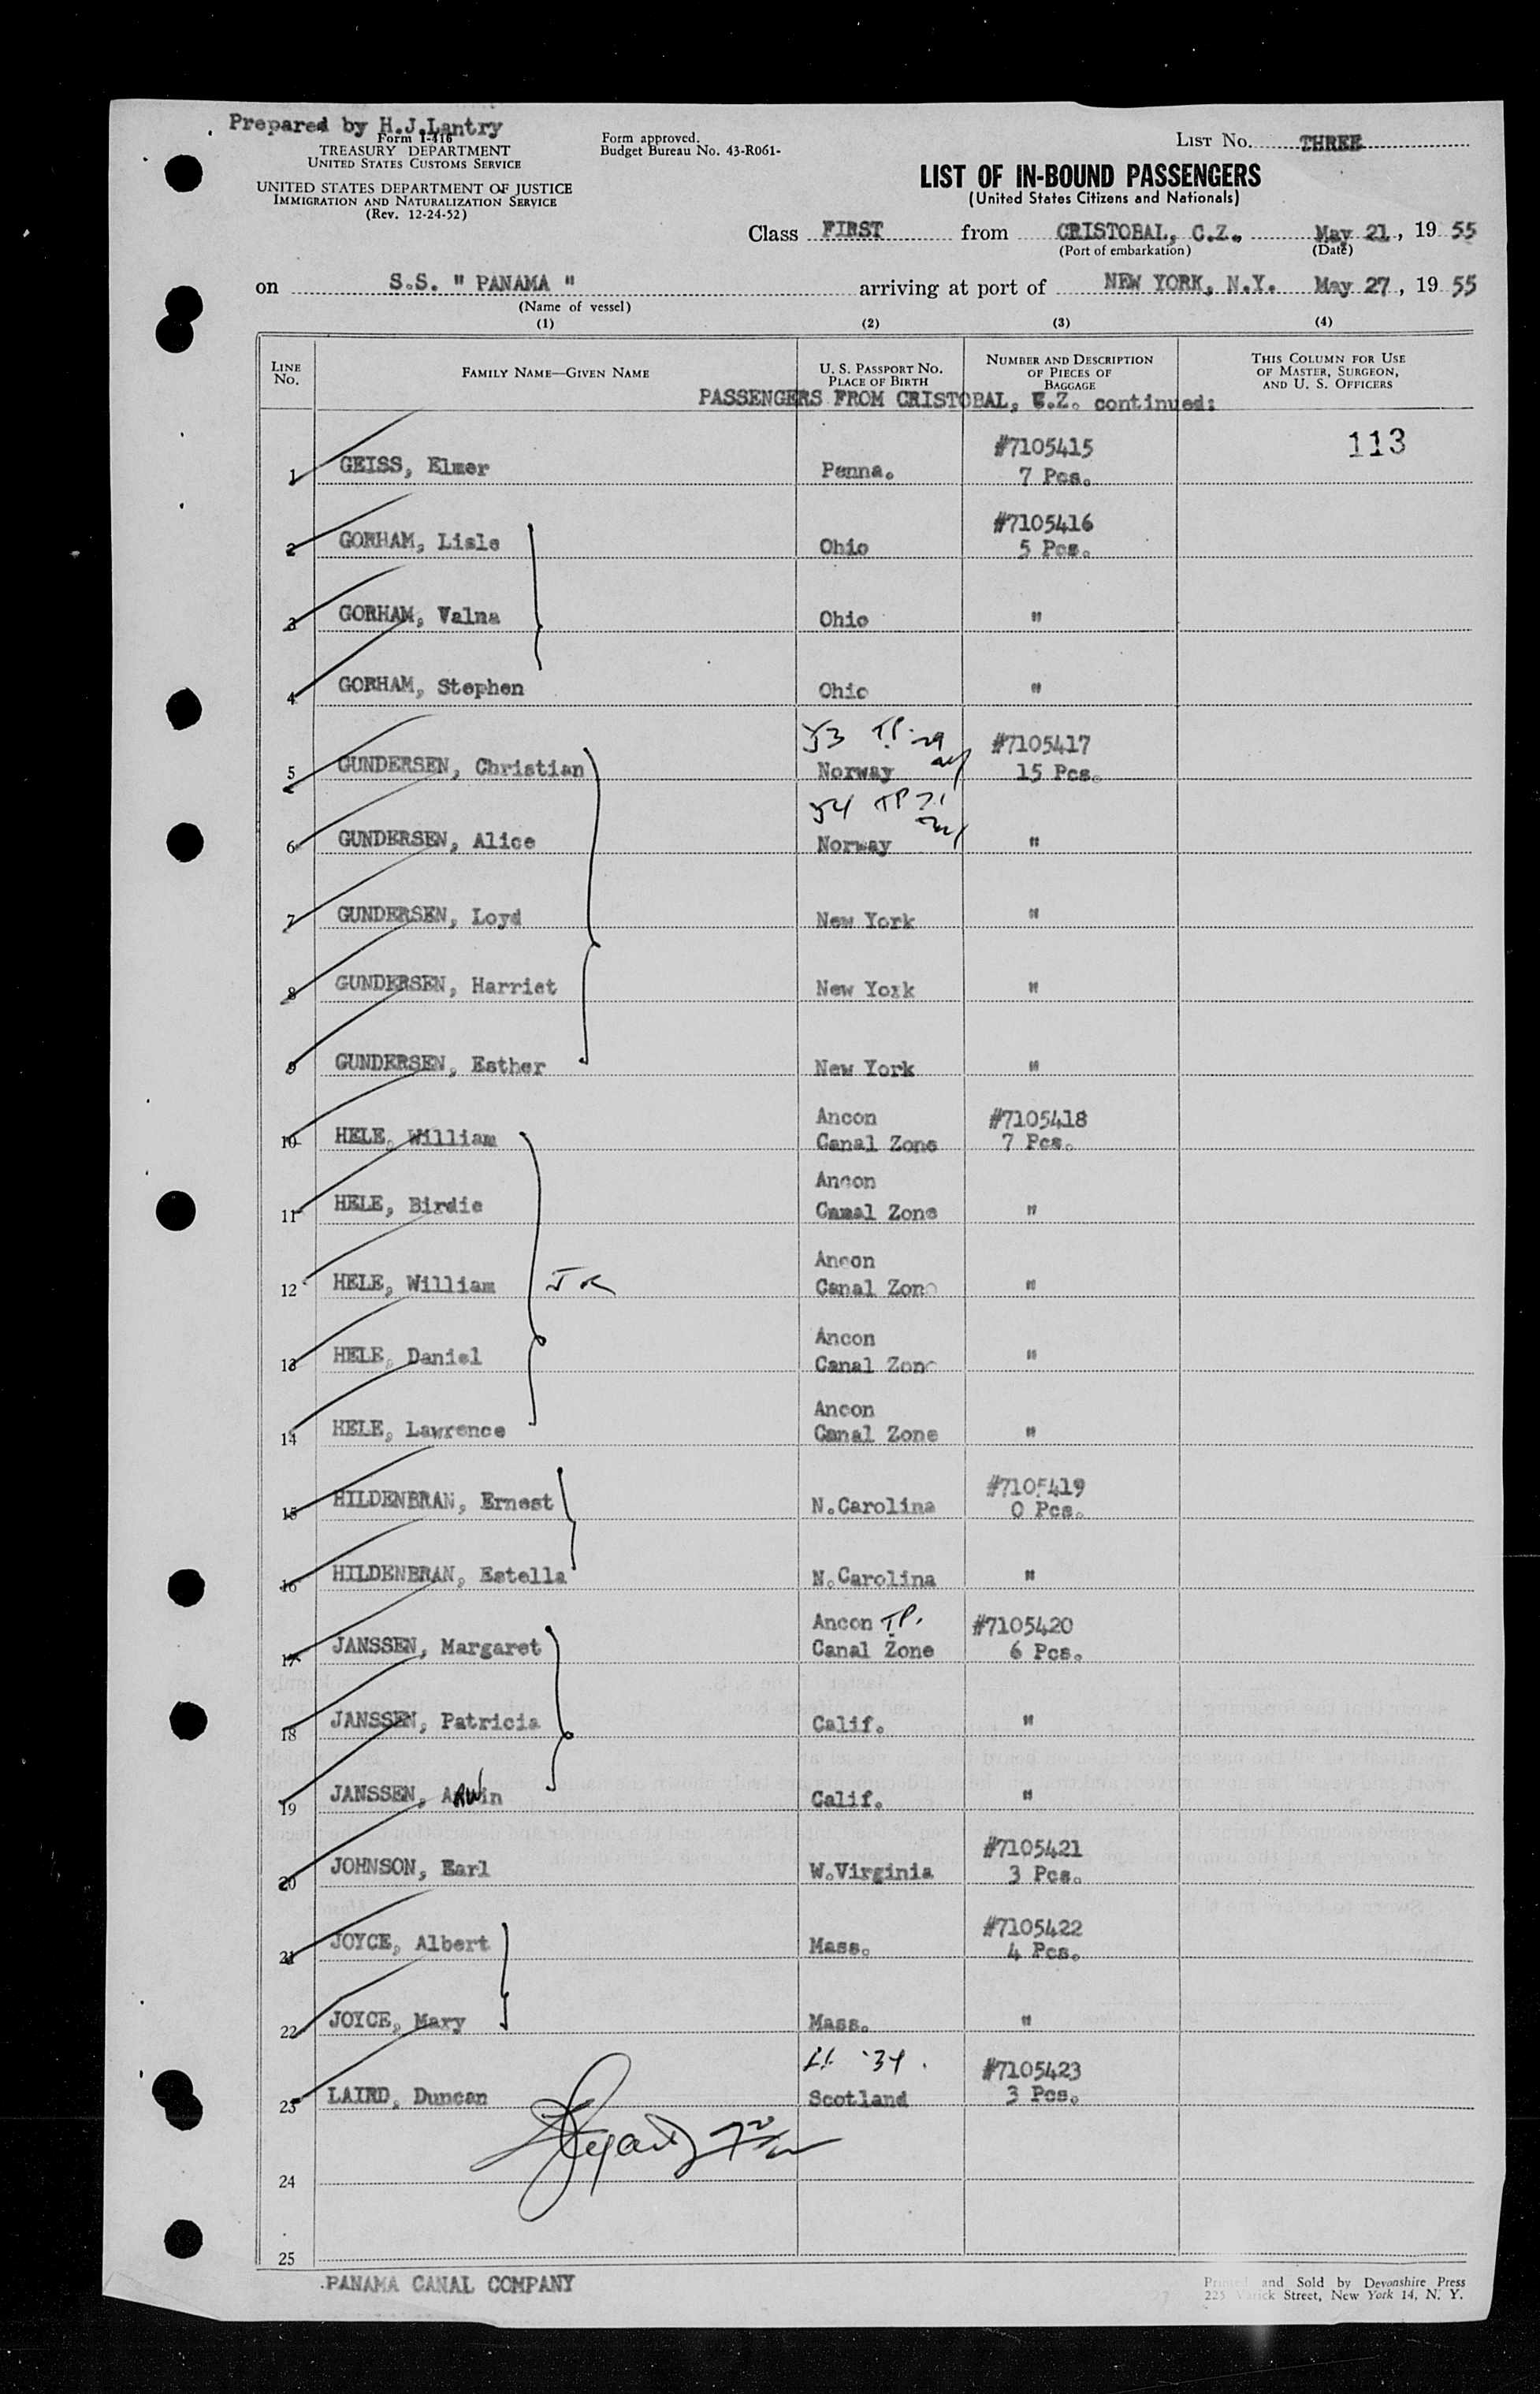 Prepared by H.J.Lantry
Form I-416
TREASURY DEPARTMENT
UNITED STATES CUSTOMS SERVICE
UNITED STATES DEPARTMENT OF JUSTICE
IMMIGRATION AND NATURALIZATION SERVICE
(Rev. 12-24-52)
Form approved.
Budget Bureau No. 43-R061-
LIST No. THREE
LIST OF IN-BOUND PASSENGERS
(United States Citizens and Nationals)
Class FIRST from CRISTOBAL, C.Z., May 21, 19 55
(Port of embarkation) (Date)
on S.S. " PANAMA " arriving at port of NEW YORK, N.Y. May 27, 19 55
(Name of vessel)
(1) (2) (3) (4)
LINE No. FAMILY NAME—GIVEN NAME U. S. PASSPORT No. PLACE OF BIRTH NUMBER AND DESCRIPTION OF PIECES OF BAGGAGE THIS COLUMN FOR USE OF MASTER, SURGEON, AND U. S. OFFICERS
PASSENGERS FROM CRISTOBAL, C.Z. continued:
113
1 GEISS, Elmer Penna. #7105415 7 Pcs.
2 GORHAM, Lisle Ohio #7105416 5 Pcs.
3 GORHAM, Valna Ohio "
4 GORHAM, Stephen Ohio "
5 GUNDERSEN, Christian 53 TP. 29 Norway #7105417 15 Pcs.
6 GUNDERSEN, Alice 54 TP Norway "
7 GUNDERSEN, Loyd New York "
8 GUNDERSEN, Harriet New York "
9 GUNDERSEN, Esther New York "
10 HELE, William Ancon Canal Zone #7105418 7 Pcs.
11 HELE, Birdie Ancon Canal Zone "
12 HELE, William JR Ancon Canal Zone "
13 HELE, Daniel Ancon Canal Zone "
14 HELE, Lawrence Ancon Canal Zone "
15 HILDENBRAN, Ernest N.Carolina #7105419 0 Pcs.
16 HILDENBRAN, Estella N.Carolina "
17 JANSSEN, Margaret Ancon TP. Canal Zone #7105420 6 Pcs.
18 JANSSEN, Patricia Calif. "
19 JANSSEN, ARWin Calif. "
20 JOHNSON, Earl W.Virginia #7105421 3 Pcs.
21 JOYCE, Albert Mass. #7105422 4 Pcs.
22 JOYCE, Mary Mass. "
23 LAIRD, Duncan '34. Scotland #7105423 3 Pcs.
24
25
PANAMA CANAL COMPANY
Printed and Sold by Devonshire Press
225 Varick Street, New York 14, N. Y.